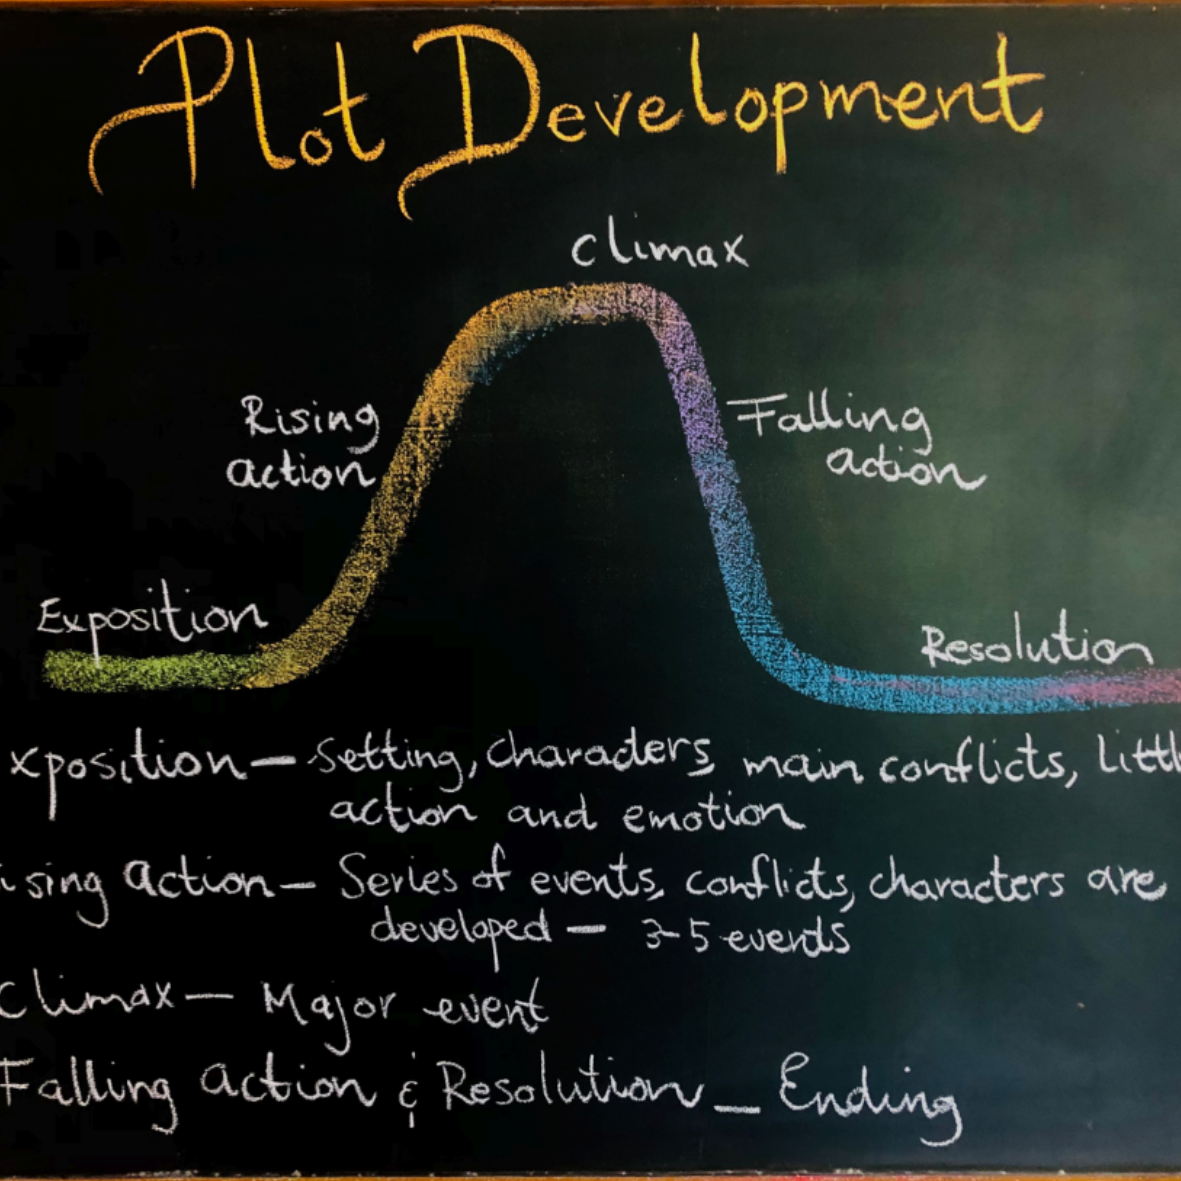 Plot Development
climax
Rising
action
Falling
action
Exposition
Resolution
xposition — setting, characters, main conflicts, littl
action and emotion
ising action — Series of events, conflicts, characters are
developed — 3-5 events
climax — Major event
Falling action & Resolution — Ending